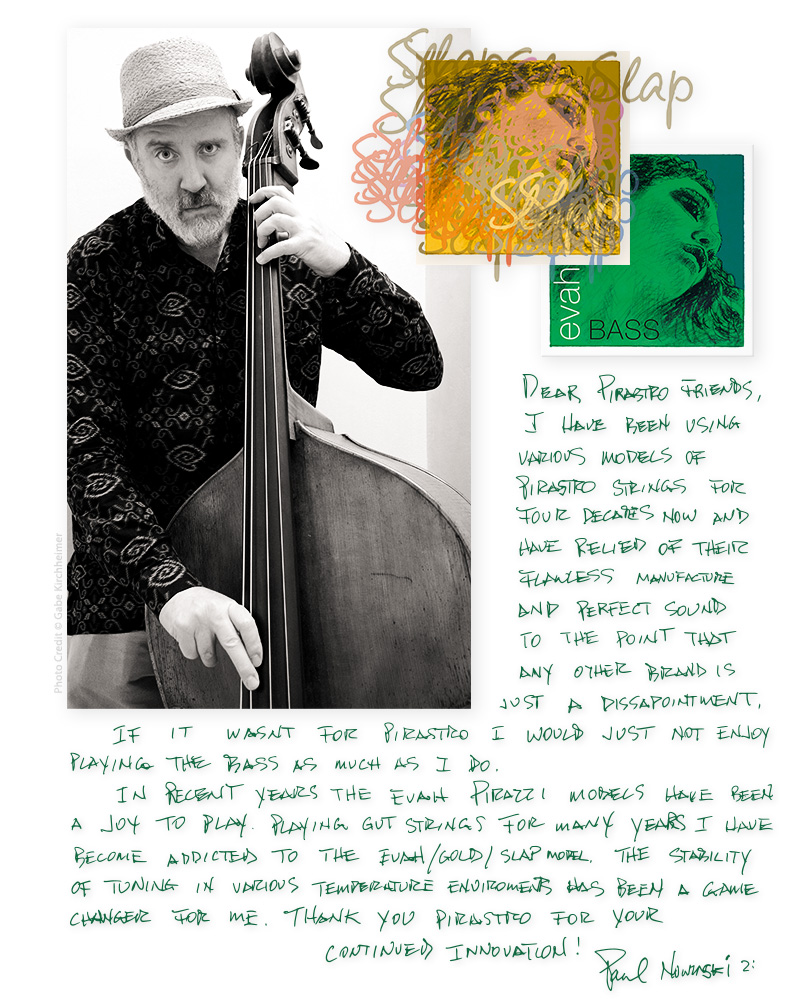 Slap
Slap
evah
BASS
Photo Credit © Gabe Kirchheimer
DEAR PIRASTRO FRIENDS,
I HAVE BEEN USING
VARIOUS MODELS OF
PIRASTRO STRINGS FOR
FOUR DECADES NOW AND
HAVE RELIED OF THEIR
FLAWLESS MANUFACTURE
AND PERFECT SOUND
TO THE POINT THAT
ANY OTHER BRAND IS
JUST A DISSAPOINTMENT.
IF IT WASNT FOR PIRASTRO I WOULD JUST NOT ENJOY
PLAYING THE BASS AS MUCH AS I DO.
IN RECENT YEARS THE EVAH PIRAZZI MODELS HAVE BEEN
A JOY TO PLAY. PLAYING GUT STRINGS FOR MANY YEARS I HAVE
BECOME ADDICTED TO THE EVAH/GOLD/SLAP MODEL. THE STABILITY
OF TUNING IN VARIOUS TEMPERATURE ENVIROMENTS HAS BEEN A GAME
CHANGER FOR ME. THANK YOU PIRASTRO FOR YOUR
CONTINUED INNOVATION!
Paul Nowinski